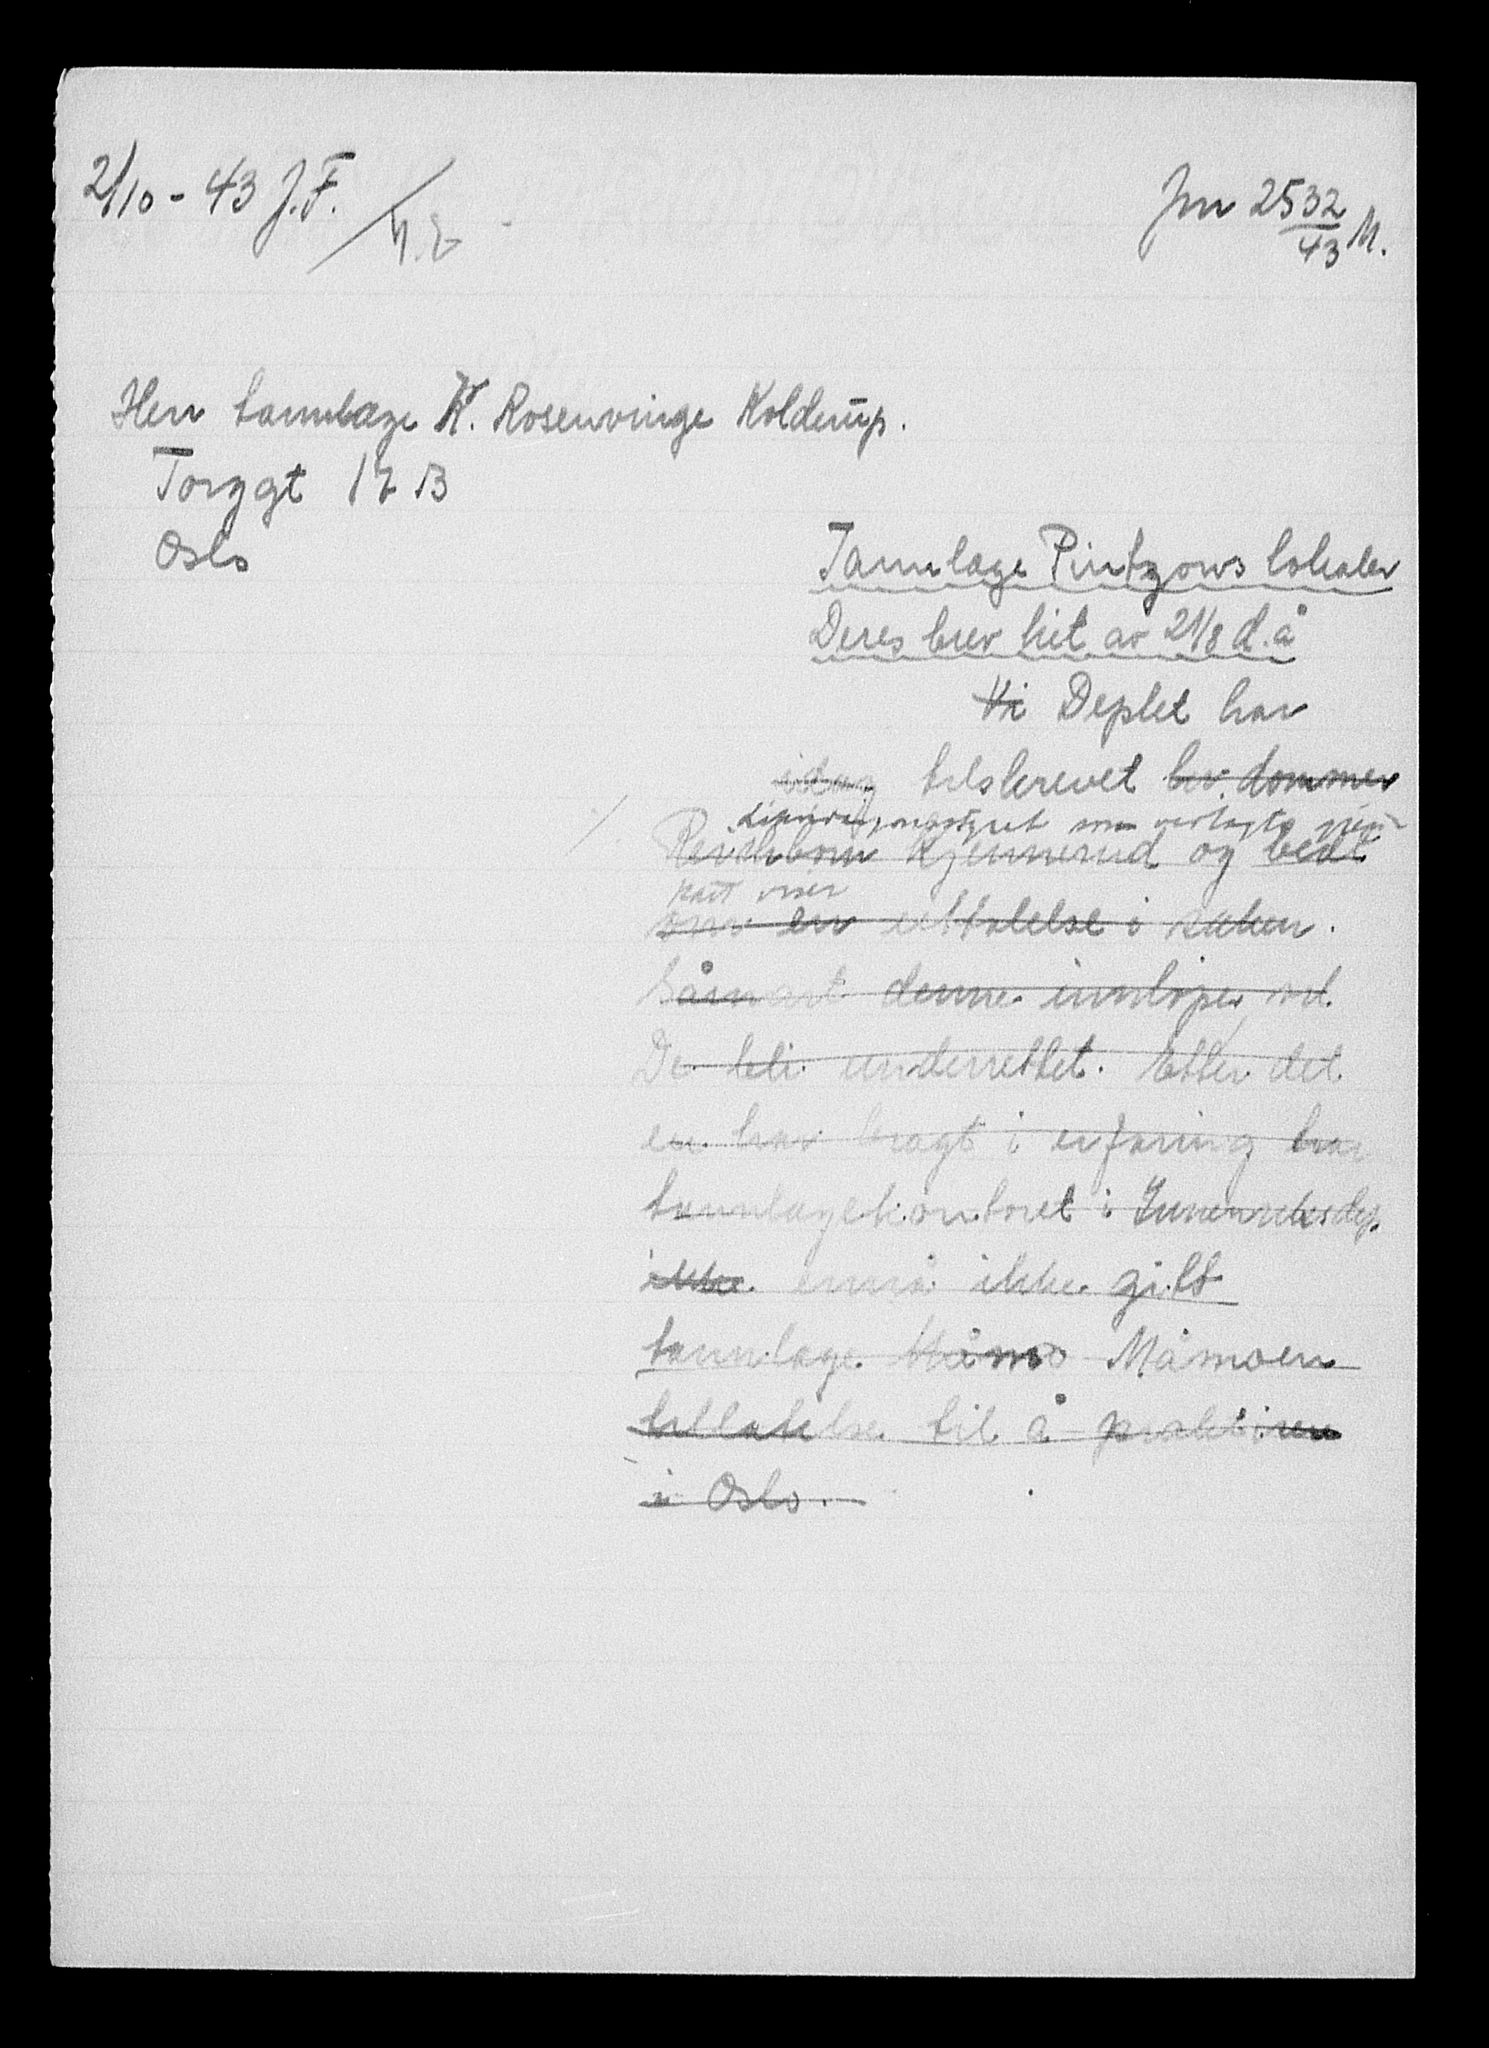 2/10-43 J.F.
Jnr 2532/43 M.
Herr tannlæge K. Rosenvinge Kolderup.
Torggt 17 B
Oslo
Tannlæge Pintzows lokaler
Deres brev hit av 21/8 d.å
Vi Deplet har
idag tilskrevet bo. dommer
som vedlagte
Kjennerud og bedt
om en uttalelse i saken.
Såsnart denne innløper vil
De bli underrettet. Etter det
en har bragt i erfaring har
tannlægekontoret i Innenriksdep.
ikke ennå ikke gitt
tannlæge Måmo Måmoen
tillatelse til å praktisere
i Oslo.